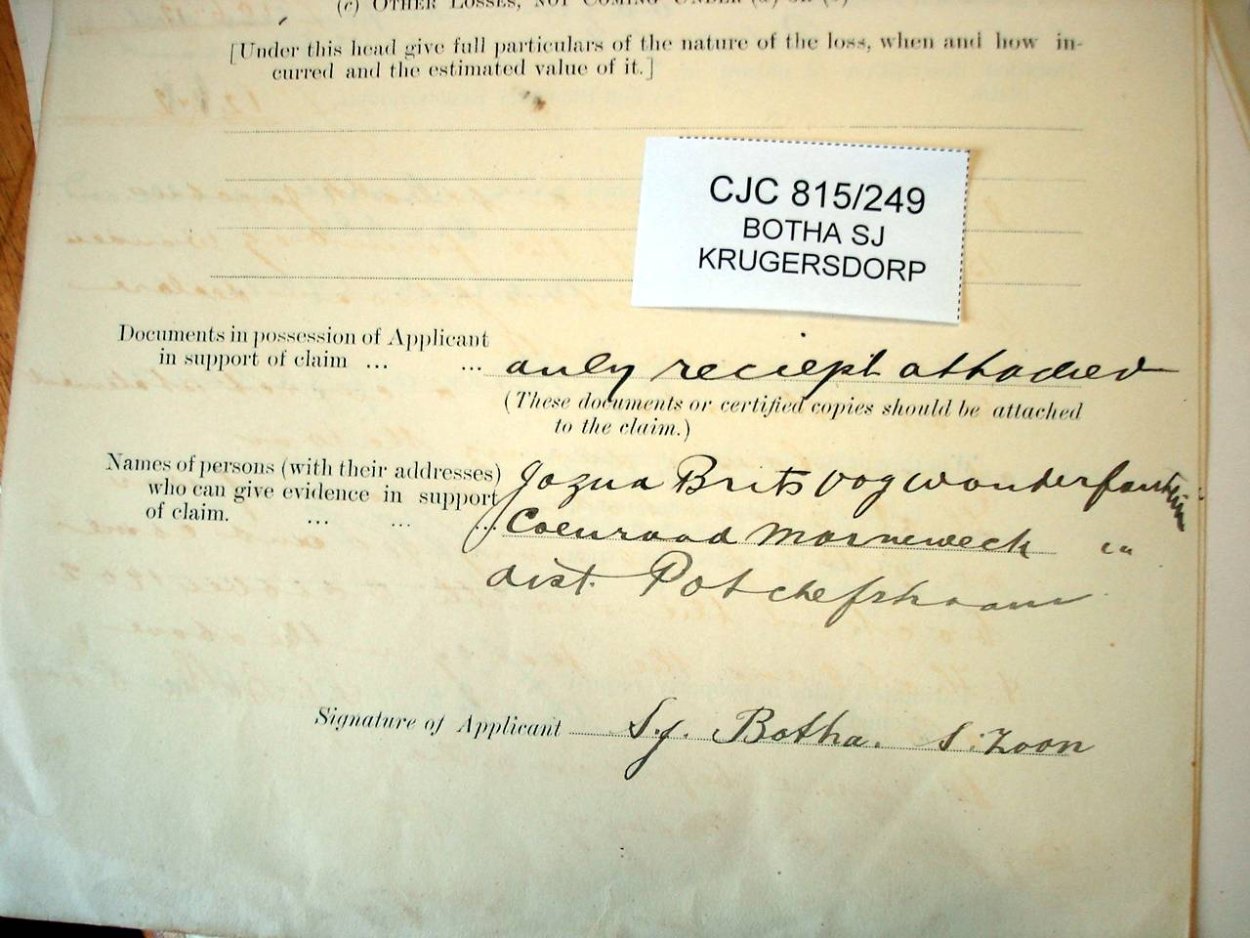 (c) OTHER LOSSES, NOT COMING UNDER (a) OR (b)
[Under this head give full particulars of the nature of the loss, when and how in-
curred and the estimated value of it.]
CJC 815/249
BOTHA SJ
KRUGERSDORP
Documents in possession of Applicant
in support of claim ... ... only reciept attached
(These documents or certified copies should be attached
to the claim.)
Names of persons (with their addresses) Jozua Brits Wonderfontein
who can give evidence in support
of claim. ... ... ... Coenraad Morneweck
dist. Potchefstroom
Signature of Applicant S.J. Botha. S. Zoon